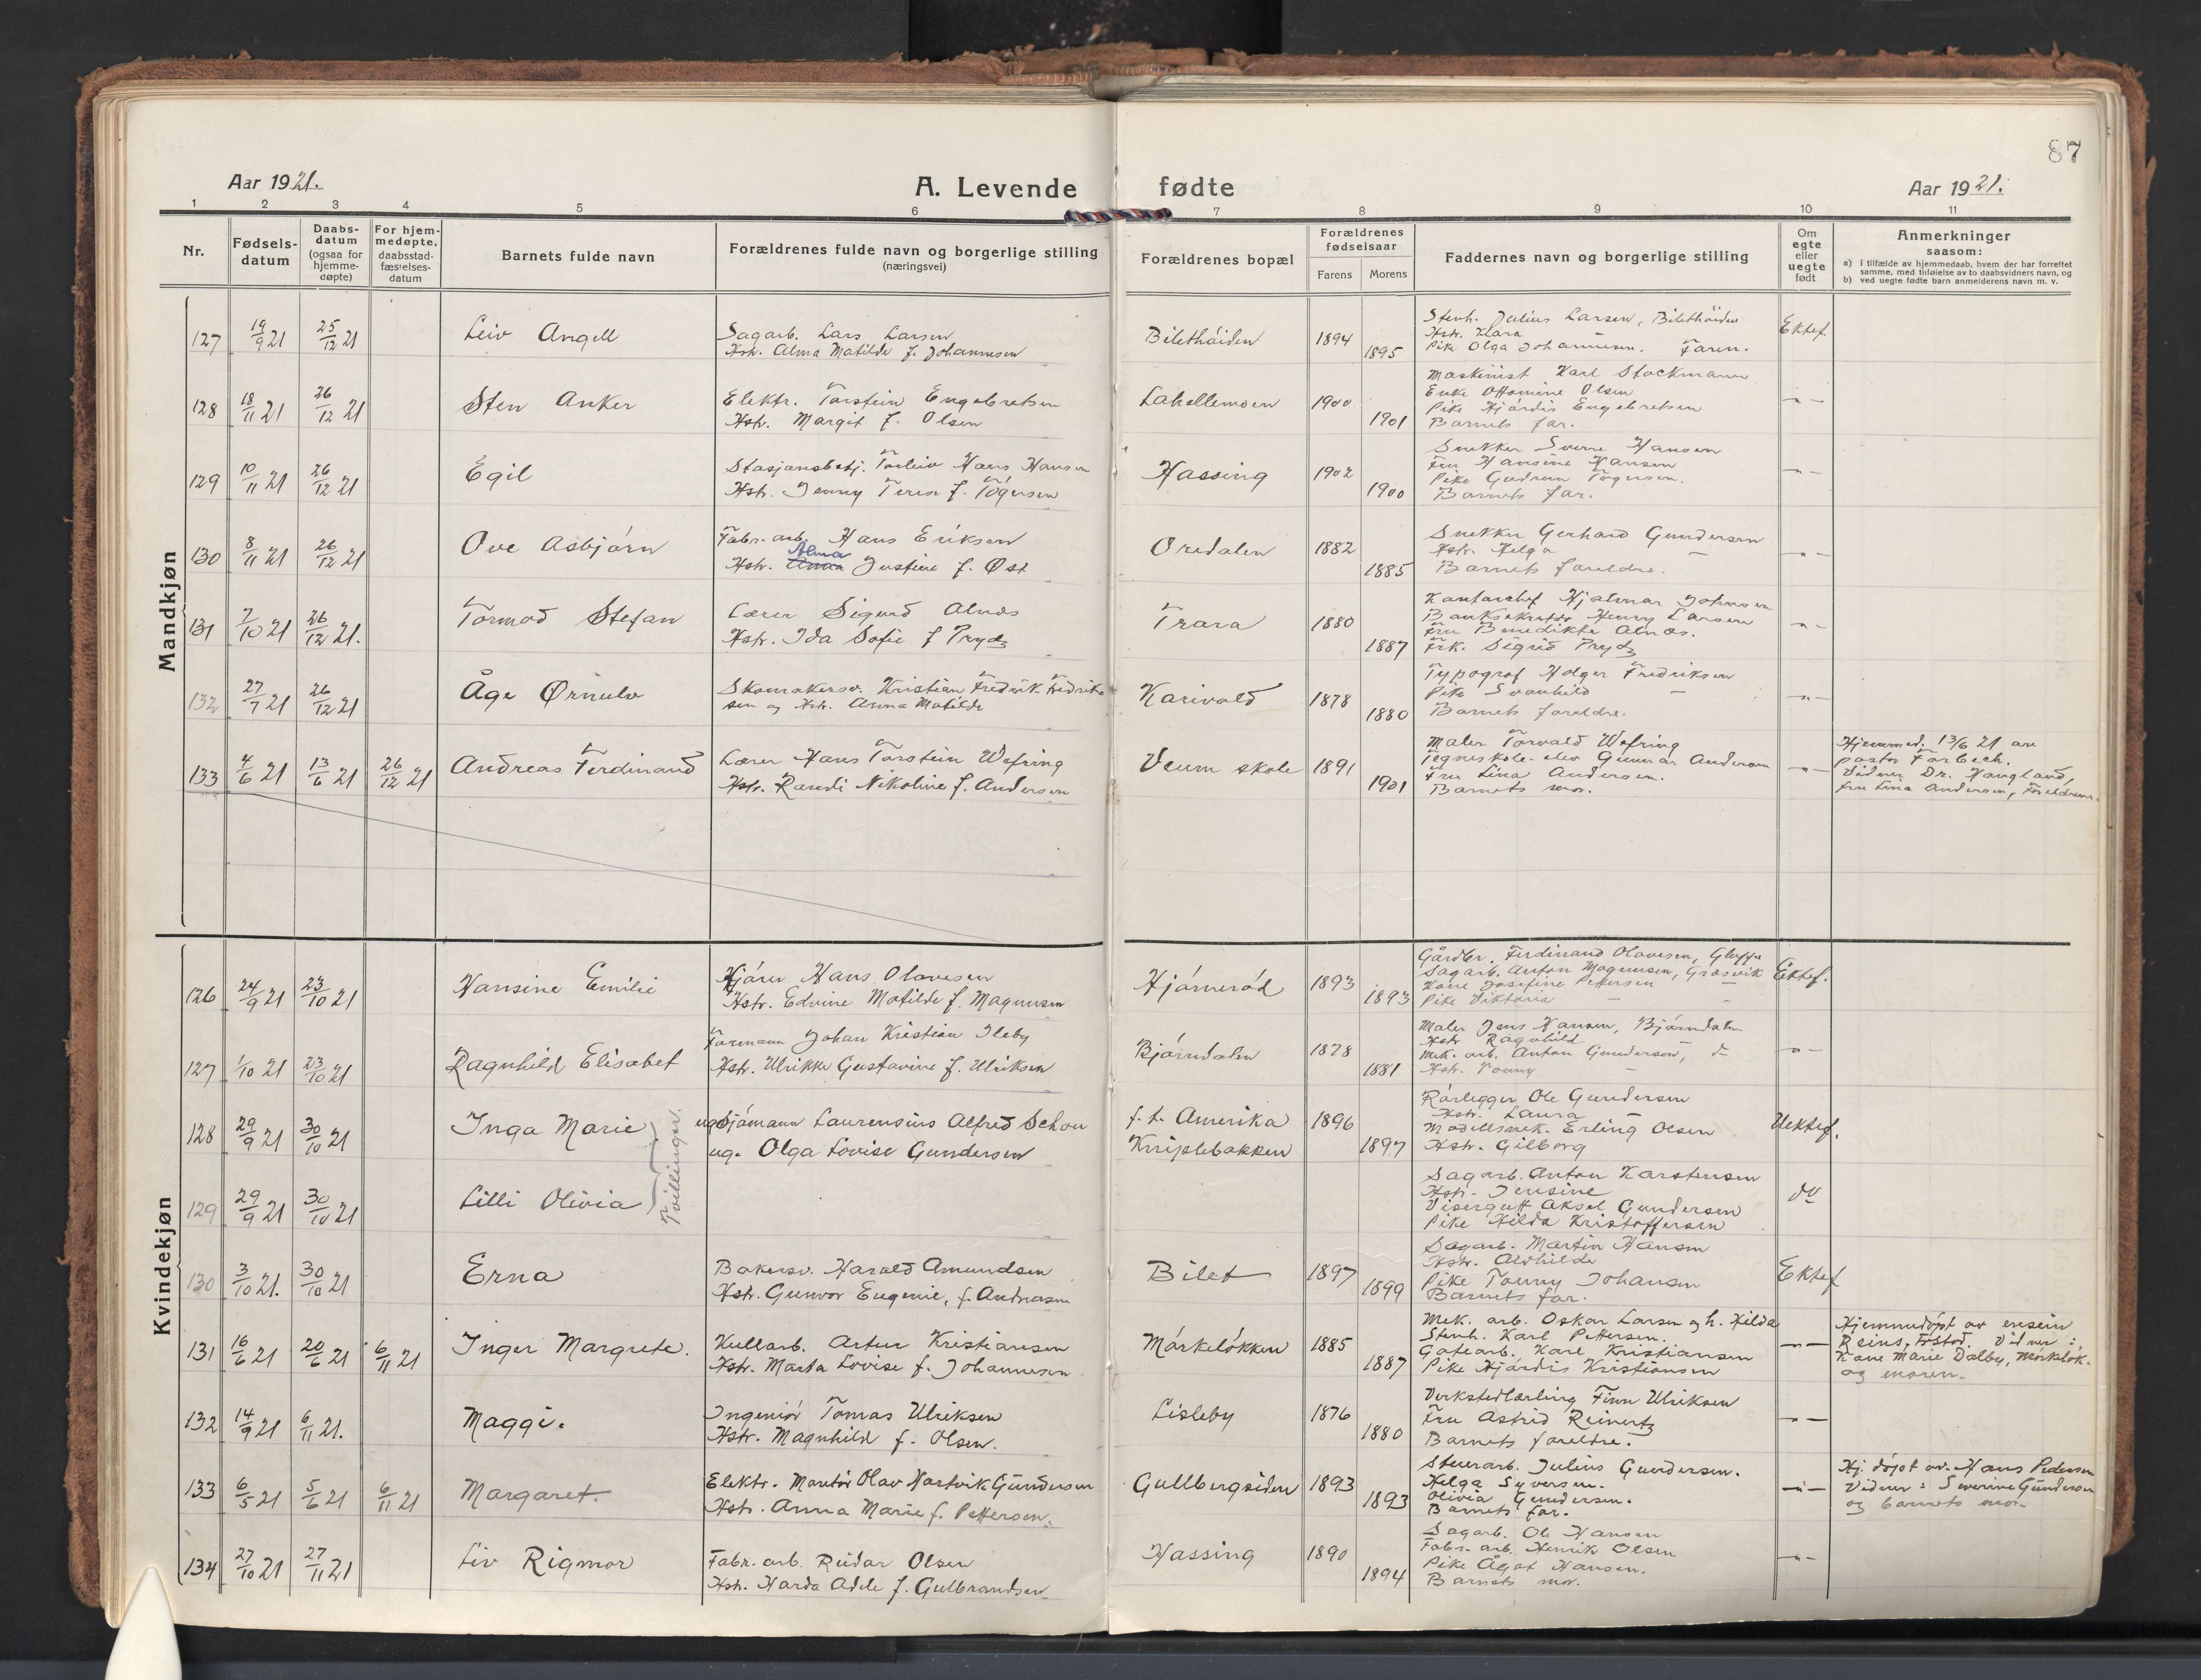 87
Aar 1921.
A. Levende fødte
Aar 1921.
1 2 3 4 5 6 7 8 9 10 11
Nr.
Fødsels-datum
Daabs-datum (ogsaa for hjemme-døpte)
For hjem-medøpte, daabsstad-fæstelses-datum
Barnets fulde navn
Forældrenes fulde navn og borgerlige stilling
(næringsvei)
Forældrenes bopæl
Forældrenes fødselsaar
Farens Morens
Faddernes navn og borgerlige stilling
Om egte eller uegte født
Anmerkninger
saasom:
a) I tilfælde av hjemmedaab, hvem der har forrettet samme, med tilføielse av to daabsvidners navn, og
b) ved uegte fødte barn anmelderens navn m. v.
Mandkjøn
127 19/9 21 25/12 21 Leiv Angell
Sagarb. Lars Larsen
Hstr. Alma Matilde f. Johannesen
Bilethöiden 1894 1895
Stenh. Julius Larsen, Bilethöiden
Hstr. Klara —
Pike Olga Johannesen. Faren.
Ektef.
128 18/11 21 26/12 21 Sten Anker
Elektr. Torstein Engebretsen
Hstr. Margit f. Olsen
Lahellemoen 1900 1901
Maskinist Karl Stockmann
Enke Ottomine Olsen
Pike Hjördis Engebretsen
Barnets far.
—"—
129 10/11 21 26/12 21 Egil
Stasjonsbetj. Torleiv Hans Hansen
Hstr. Jenny Teres f. Tögersen
Hassing 1902 1900
Snekker Sverre Hansen
Fru Hansine Hansen
Pike Gudrun Tögersen.
Barnets far.
—"—
130 8/11 21 26/12 21 Ove Asbjörn
Fabr. arb. Hans Eriksen
Alma
Hstr. Anna Justine f. Øst
Oredalen 1882 1885
Snekker Gerhard Gundersen
Hstr. Helga —
Barnets foreldre.
—"—
131 7/10 21 26/12 21. Tormod Stefan
Lærer Sigurd Alnæs
Hstr. Ida Sofie f Prydz
Trara 1880 1887
Kontorchef Hjalmar Johnsen
Banksekretær Henry Larsen
Fru Benedikte Alnæs.
Frk. Sigrid Prydz
—"—
132 27/7 21 26/12 21 Åge Ørnulv
Skomakersv. Kristian Fredrik Fredrik-
sen og Hstr. Anna Matilde
Karivold 1878 1880
Typograf Holger Fredriksen
Pike Svanhild —
Barnets foreldre.
—"—
133 4/6 21 13/6 21 26/12 21 Andreas Ferdinand
Lærer Hans Torstein Wefring
Hstr. Randi Nikoline f. Andersen
Veum skole 1891 1901
Maler Torvald Wefring
Tegneskole-elev Gunnar Andersen
Fru Lina Andersen.
Barnets mor.
—"—
Hjemmed. 13/6 21 av
pastor Farbech.
Vidner Dr. Haugland,
fru Lina Andersen, Foreldrene.
Kvindekjøn
126 24/9 21 23/10 21 Hansine Emilie
Kjörer Hans Olavesen
Hstr. Edvine Matilde f. Magnusen
Hjörneröd 1893 1893
Gårdbr. Ferdinand Olavesen, Gluppe
Sagarb. Anton Magnusen, Græsvik
Kone Josefine Pettersen —
Pike Viktoria — —
Ektef.
127 1/10 21 23/10 21 Ragnhild Elisabet
Formann Johan Kristian Ileby
Hstr. Ulrikke Gustavine f. Ulriksen
Björndalen 1878 1881
Maler Jens Hansen, Björndalen
Hstr Ragnhild
Mek. arb. Anton Gundersen, do
Hstr. Ponny —
—"—
128 29/9 21 30/10 21 Inga Marie
Tvillinger.
ug. Sjömann Laurensius Alfred Schou
ug. Olga Lovise Gundersen
f. t. Amerika
Kniplebakken 1896 1897
Rörlegger Ole Gundersen
Hstr. Laura —
Modellsnek. Erling Olsen
Hstr. Gilborg
Uektef.
129 29/9 21 30/10 21 Lilli Olivia
Sagarb. Anton Karstensen
Hstr. Jensine
Visergutt Aksel Gundersen
Pike Hilda Kristoffersen
do
130 3/10 21. 30/10 21 Erna
Bakersv. Harald Amundsen
Hstr. Gunvor Eugenie, f. Andreasen
Bilet 1897 1899
Sagarb. Martin Hansen
Hstr. Alvhilde
Pike Tonny Johansen
Barnets far.
Ektef
131 16/6 21 20/6 21 6/11 21 Inger Margrete.
Kullarb. Artur Kristiansen
Hstr. Marta Lovise f. Johannesen
Mörkelökken 1885 1887
Mek. arb. Oskar Larsen og h. Hilda
Stenh. Karl Pettersen.
Gatearb. Karl Kristiansen
Pike Hjördis Kristiansen
—"—
Hjemmedöpt av
Reins, Frstad. Vidner:
Kone Marie Dalby, Mörkelök.
og moren.
132 14/9 21 6/11 21. Maggi.
Ingeniör Tomas Ulriksen
Hstr. Magnhild f. Olsen.
Lisleby 1876 1880
Verkstedlærling Finn Ulriksen
Fru Astrid Reinertz
Barnets foreldre.
—"—
133 6/5 21 5/6 21 6/11 21 Margaret.
Elektr. Montör Olav Hartvik Gundersen
Hstr. Anna Marie f. Pettersen.
Gullbergsiden 1893 1893
Stuerarb. Julius Gundersen.
Helga Syversen.
Olivia Gundersen.
Barnets far.
—"—
Hj. döpt av. Hans Pedersen
Vidner: Severine Gundersen
og barnets mor.
134 27/10 21 27/11 21 Liv Rigmor
Fabr. arb. Reidar Olsen
Hstr. Harda Adele f. Gulbrandsen
Hassing 1890 1894
Sagarb. Ole Hansen
Fabr. arb. Henrik Olsen
Pike Ågot Hansen.
Barnets mor.
—"—